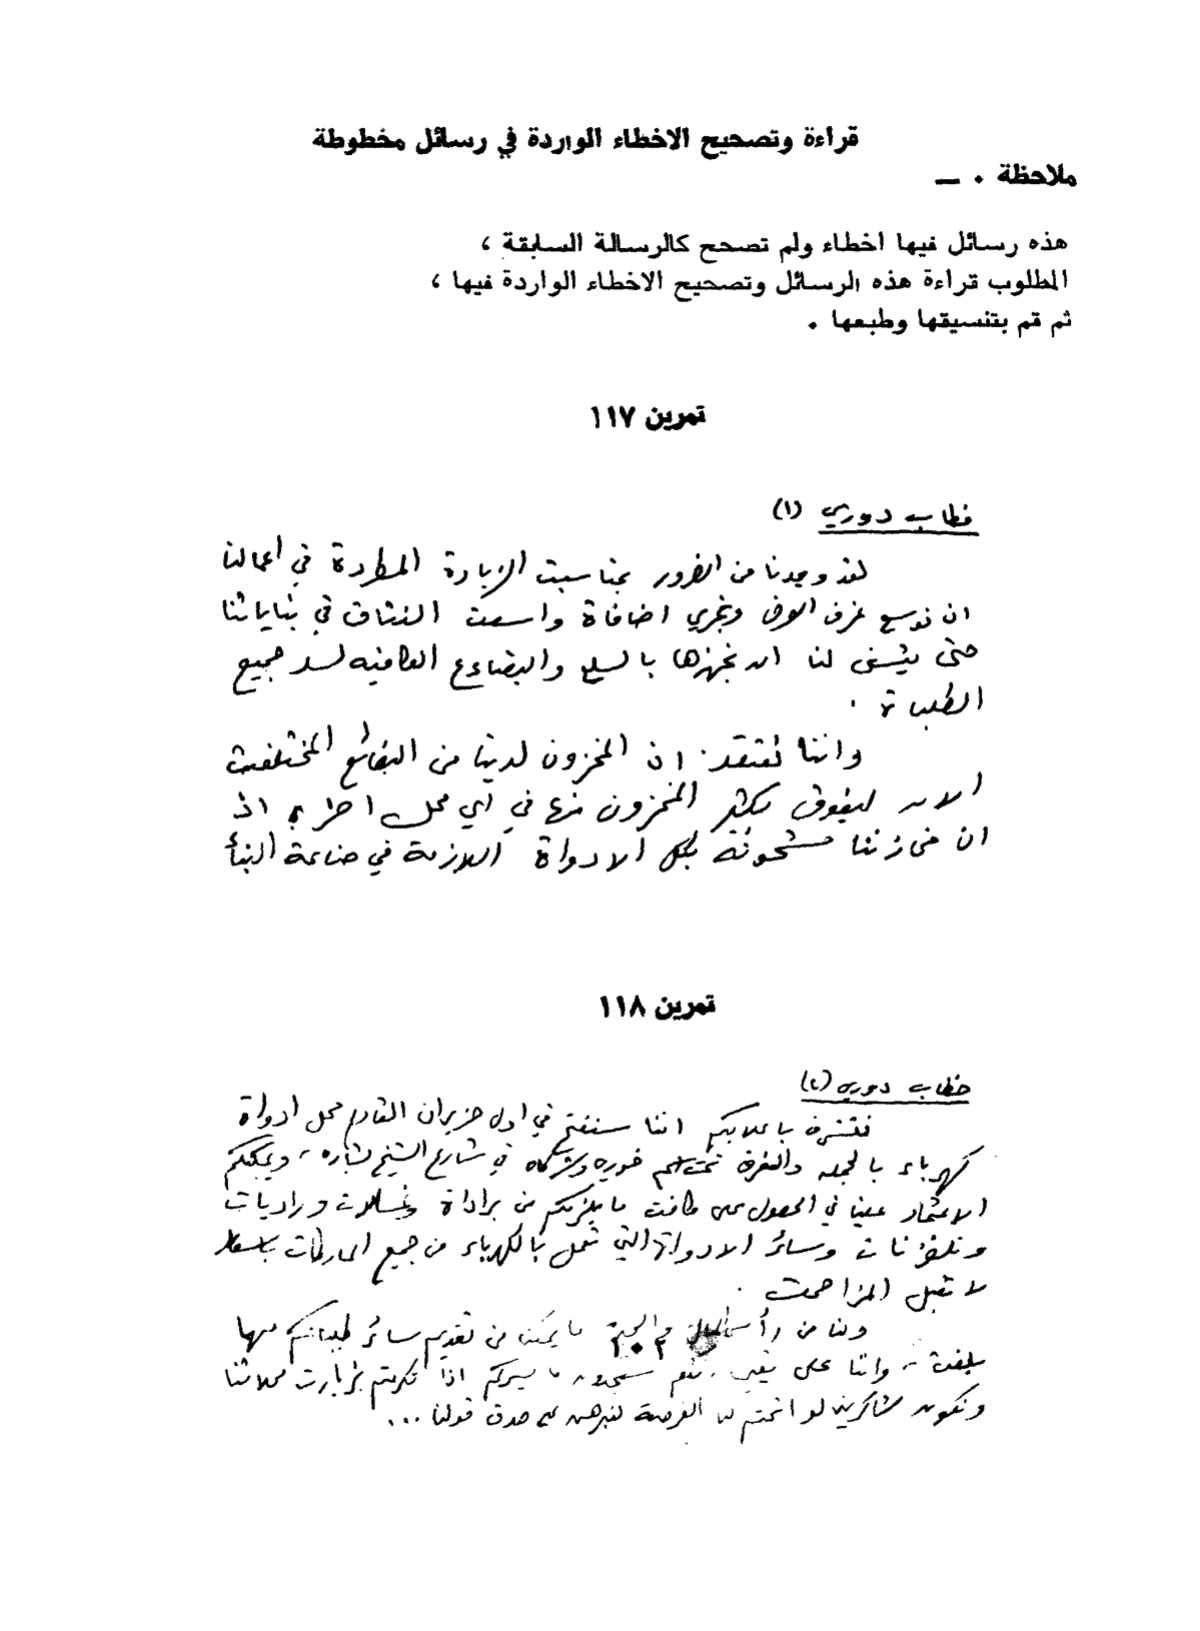 قراءة وتصحيح الاخطاء الواردة في رسائل مخطوطة
ملاحظة . —
هذه رسائل فيها اخطاء ولم تصحح كالرسالة السابقة ،
المطلوب قراءة هذه الرسائل وتصحيح الاخطاء الواردة فيها ،
ثم قم بتنسيقها وطبعها .
تمرين ١١٧
خطاب دوري (١)
لقد وجدنا من الضرور بمناسبت الزيادة المطردة في أعمالنا
ان نوسع غرف العرض ونجري اضافاة واسعت النتاق في بناياتنا
حتى يتسنى لنا ان نجهزها بالسلع والبضاءع الكافيه لسد جميع
الطلباة .
واننا نعتقد ان المخزون لدينا من البضائع المختلفت
الان ليفوق بكثير المخزون منها في اي محل اخر ، اذ
ان مخازننا مشحونة بكل الادواة اللازمة في صناعة البنأ
تمرين ١١٨
خطاب دوري (٢)
نتشرف باعلامكم اننا سنفتح في اول حزيران القادم محل ادواة
كهرباء بالجمله والمفرق تحت اسم خوري وشركاه في شارع الشيخ بشاره ، ويمكنكم
الاعتماد علينا في الحصول على كافت ما يلزمكم من براداة وغسالات وراديات
وتلفزنات وسائر الادواة التي تعمل بالكهرباء من جميع الماركات باسعار
لا تقبل المزاحمت .
ولنا من رأسمال ما يمكننا من تقديم سائر طلباتكم مهما
بلغت ، واننا على ستجدون ما يسركم اذا تكرمتم بزيارت محلاتنا
ونكون شاكرين لو اتحتم لنا الفرصة لنبرهن على صدق قولنا ...
١٠٢